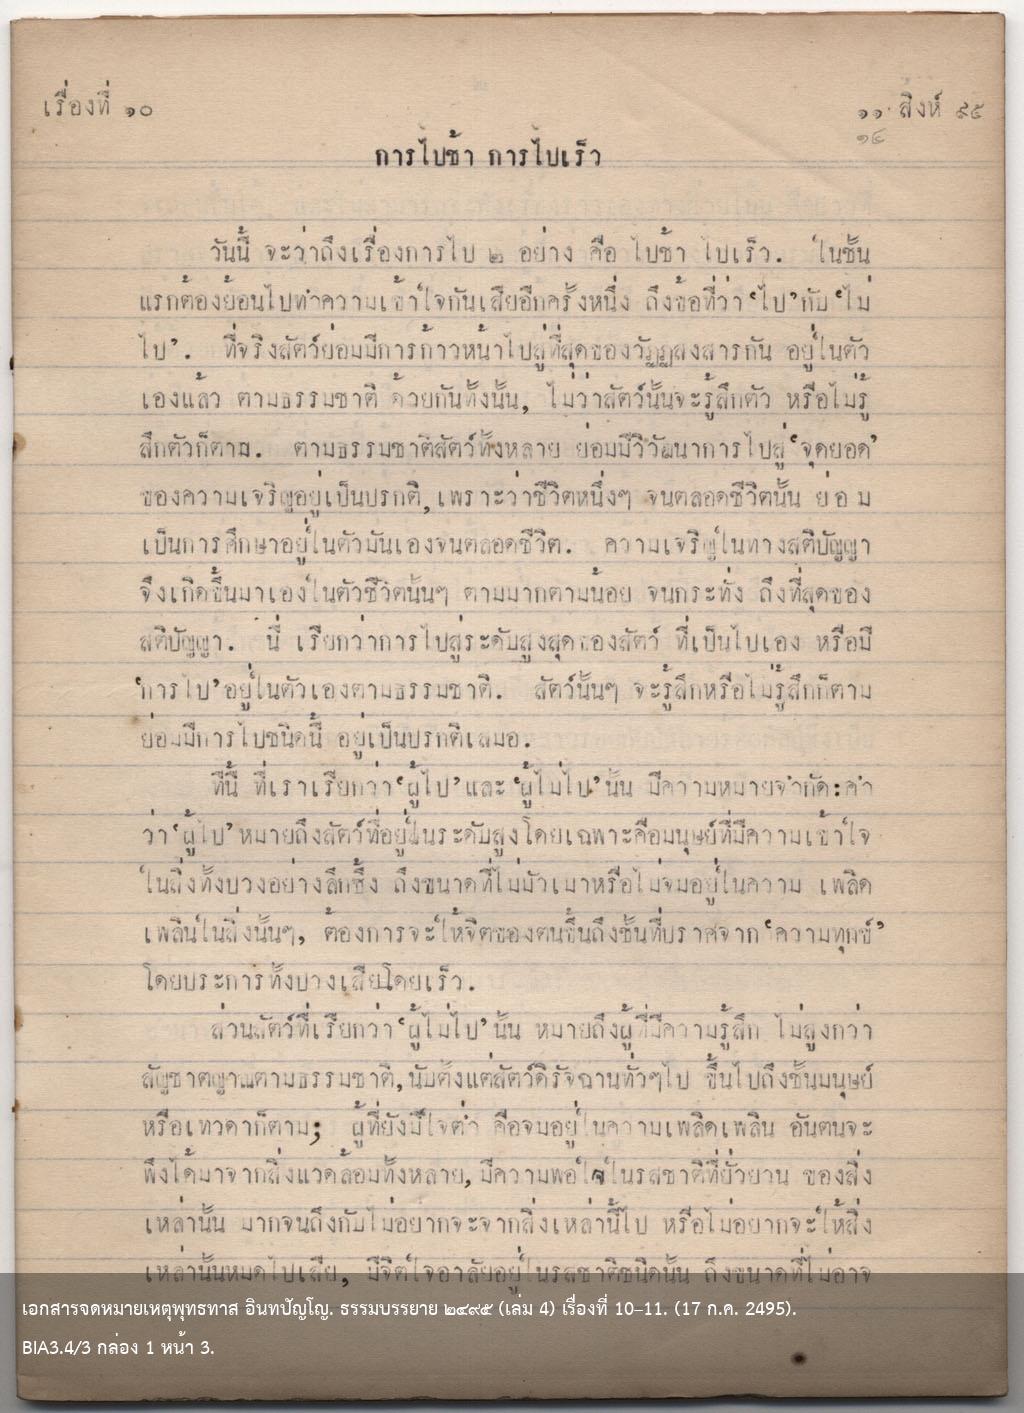 เรื่องที่ ๑๐
๑๑ สิงห์ ๙๕
๑๔
การไปช้า การไปเร็ว
วันนี้ จะว่าถึงเรื่องการไป ๒ อย่าง คือ ไปช้า ไปเร็ว. ในชั้น
แรกต้องย้อนไปทำความเข้าใจกันเสียอีกครั้งหนึ่ง ถึงข้อที่ว่า ‘ไป’ กับ ‘ไม่
ไป’. ที่จริงสัตว์ย่อมมีการก้าวหน้าไปสู่ที่สุดของวัฏฏสงสารกัน อยู่ในตัว
เองแล้ว ตามธรรมชาติ ด้วยกันทั้งนั้น, ไม่ว่าสัตว์นั้นจะรู้สึกตัว หรือไม่รู้
สึกตัวก็ตาม. ตามธรรมชาติสัตว์ทั้งหลาย ย่อมมีวิวัฒนาการไปสู่ ‘จุดยอด’
ของความเจริญอยู่เป็นปรกติ, เพราะว่าชีวิตหนึ่งๆ จนตลอดชีวิตนั้น ย่อม
เป็นการศึกษาอยู่ในตัวมันเองจนตลอดชีวิต. ความเจริญในทางสติปัญญา
จึงเกิดขึ้นมาเองในตัวชีวิตนั้นๆ ตามมากตามน้อย จนกระทั่ง ถึงที่สุดของ
สติปัญญา. นี่ เรียกว่าการไปสู่ระดับสูงสุดของสัตว์ ที่เป็นไปเอง หรือมี
‘การไป’ อยู่ในตัวเองตามธรรมชาติ. สัตว์นั้นๆ จะรู้สึกหรือไม่รู้สึกก็ตาม
ย่อมมีการไปชนิดนี้ อยู่เป็นปรกติเสมอ.
ทีนี้ ที่เราเรียกว่า ‘ผู้ไป’ และ ‘ผู้ไม่ไป’ นั้น มีความหมายจำกัด: คำ
ว่า ‘ผู้ไป’ หมายถึงสัตว์ที่อยู่ในระดับสูงโดยเฉพาะคือมนุษย์ที่มีความเข้าใจ
ในสิ่งทั้งปวงอย่างลึกซึ้ง ถึงขนาดที่ไม่มัวเมาหรือไม่จมอยู่ในความ เพลิด
เพลินในสิ่งนั้นๆ, ต้องการจะให้จิตของตนขึ้นถึงชั้นที่ปราศจาก ‘ความทุกข์’
โดยประการทั้งปวงเสียโดยเร็ว.
ส่วนสัตว์ที่เรียกว่า ‘ผู้ไม่ไป’ นั้น หมายถึงผู้ที่มีความรู้สึก ไม่สูงกว่า
สัญชาตญาณตามธรรมชาติ, นับตั้งแต่สัตว์ดิรัจฉานทั่วๆไป ขึ้นไปถึงชั้นมนุษย์
หรือเทวดาก็ตาม; ผู้ที่ยังมีใจต่ำ คือจมอยู่ในความเพลิดเพลิน อันตนจะ
พึงได้มาจากสิ่งแวดล้อมทั้งหลาย, มีความพอใจในรสชาติที่ยั่วยวน ของสิ่ง
เหล่านั้น มากจนถึงกับไม่อยากจะจากสิ่งเหล่านี้ไป หรือไม่อยากจะให้สิ่ง
เหล่านั้นหมดไปเสีย, มีจิตใจอาลัยอยู่ในรสชาติชนิดนั้น ถึงขนาดที่ไม่อาจ
เอกสารจดหมายเหตุพุทธทาส อินทปัญโญ. ธรรมบรรยาย ๒๔๙๕ (เล่ม 4) เรื่องที่ 10–11. (17 ก.ค. 2495).
BIA3.4/3 กล่อง 1 หน้า 3.